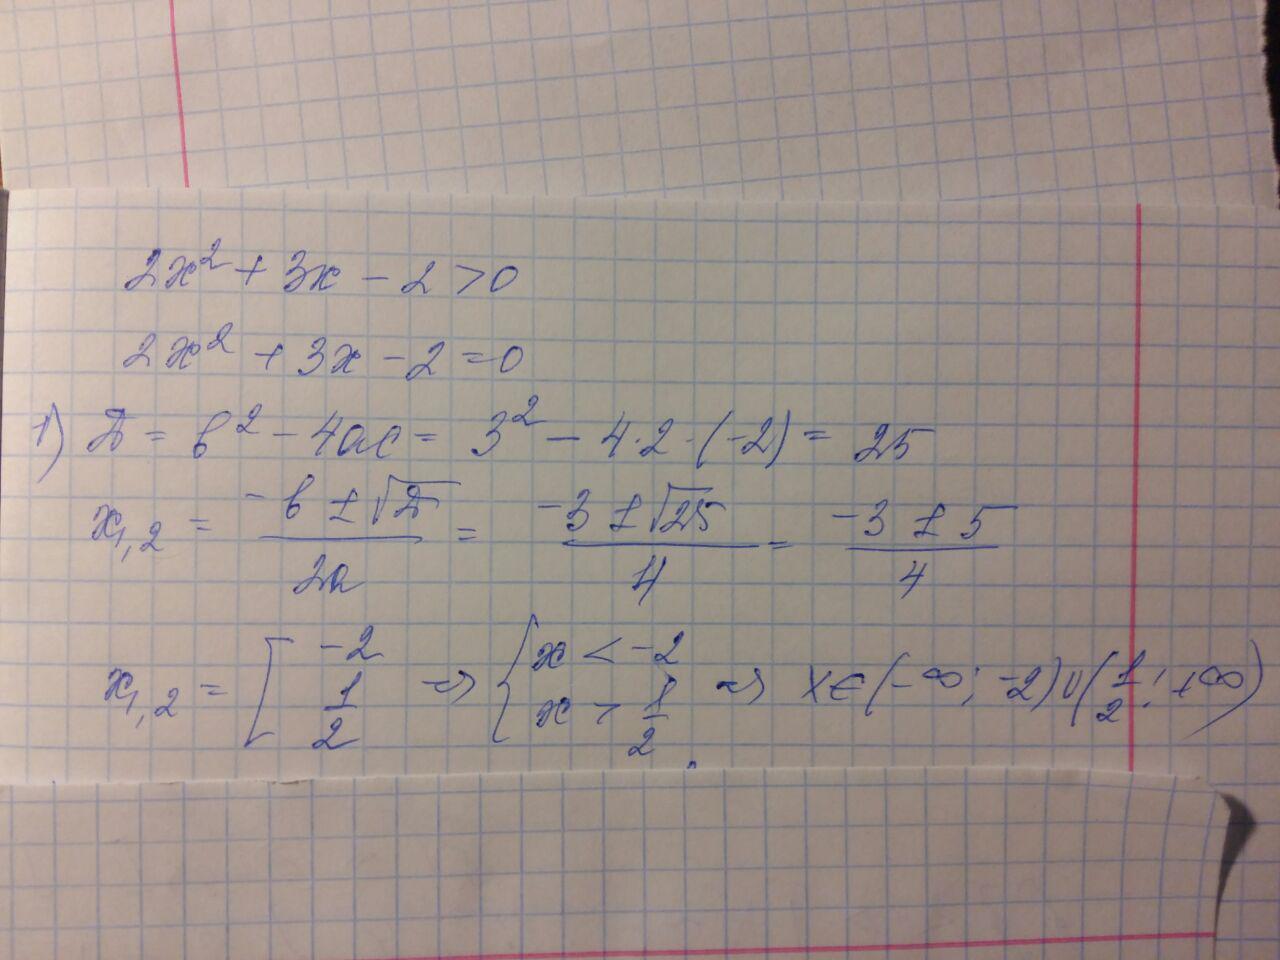 2x² + 3x - 2 > 0
2x² + 3x - 2 = 0
1) D = b² - 4ac = 3² - 4·2·(-2) = 25
x₁,₂ = (-b ± √D)/(2a) = (-3 ± √25)/4 = (-3 ± 5)/4
x₁,₂ = [ -2 ; 1/2 ⇒ { x < -2 ; x > 1/2 ⇒ x ∈ (-∞; -2) ∪ (1/2; +∞)